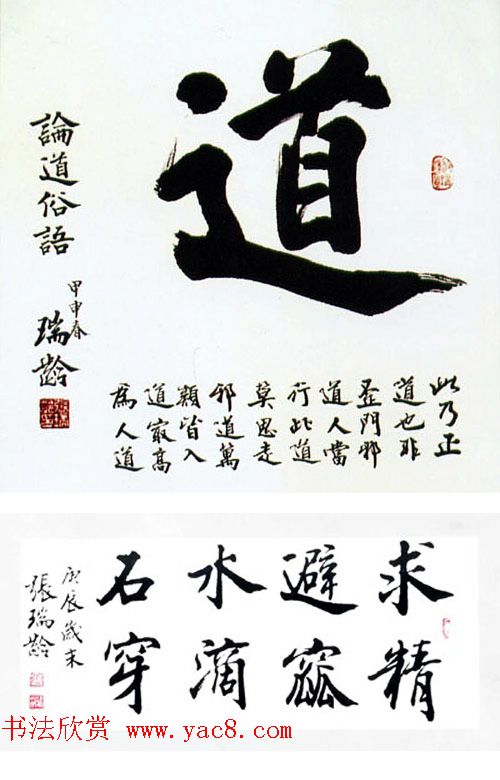 道
此乃正
道也非
歪門邪
道人當
行此道
莫思走
邪道萬
類皆入
道最高
為人道
論道俗語
甲申春
瑞齡
求精
避窳
水滴
石穿
庚辰歲末
張瑞齡
书法欣赏 www.yac8.com